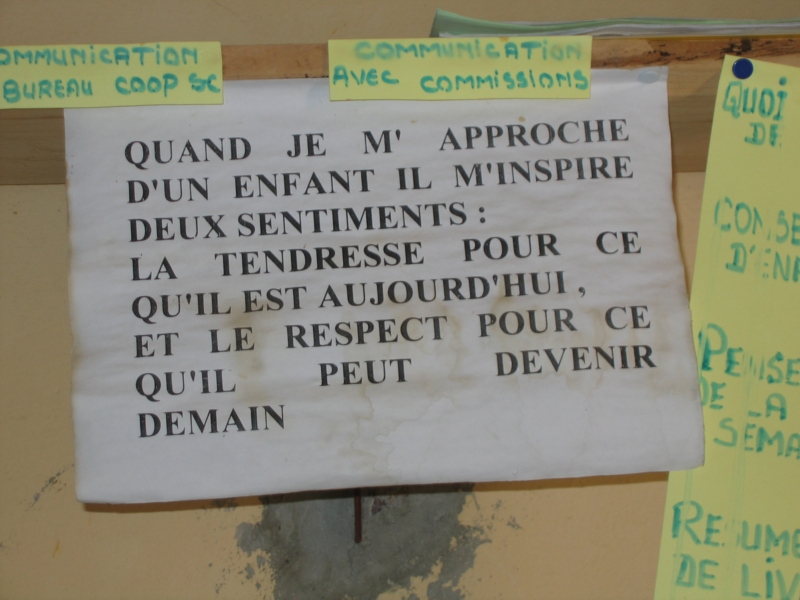 OMMUNICATION
BUREAU COOP SC
COMMUNICATION
AVEC COMMISSIONS
QUAND JE M' APPROCHE
D'UN ENFANT IL M'INSPIRE
DEUX SENTIMENTS :
LA TENDRESSE POUR CE
QU'IL EST AUJOURD'HUI ,
ET LE RESPECT POUR CE
QU'IL PEUT DEVENIR
DEMAIN
QUOI
DE
CONSE
D'ENF
PENSE
DE LA
SEMA
RESUME
DE LIV